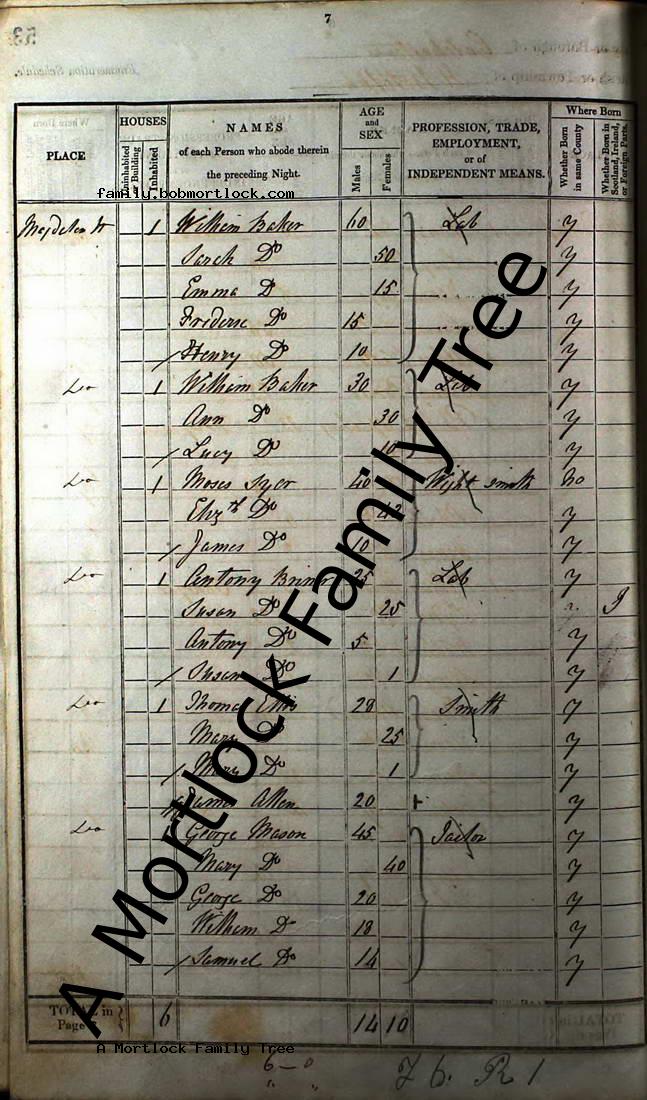 7
53
Enumeration Schedule.
PLACE
HOUSES
Uninhabited or Building
Inhabited
NAMES
of each Person who abode therein
the preceding Night.
AGE
and
SEX
Males
Females
PROFESSION, TRADE,
EMPLOYMENT,
or of
INDEPENDENT MEANS.
Where Born
Whether Born in same County
Whether Born in Scotland, Ireland, or Foreign Parts.
family.bobmortlock.com
1 William Baker 60 Lab y
Sarah Do 50 y
Emma Do 15 y
Frederic Do 15 y
Henry Do 10 y
Do 1 William Baker 30 Lab y
Ann Do 30 y
Lucy Do 10 y
Do 1 Moses 40 smith no
Elizth Do y
James Do 10 y
Do 1 Antony 25 Lab y
Susan Do 25 I
Antony Do 5 y
Susan Do 1 y
Do 1 Thomas Ellis 28 Smith y
Mary Do 25 y
Mary Do 1 y
James Allen 20 y
Do George Mason 45 Tailor y
Mary Do 40 y
George Do 20 y
William Do 18 y
Samuel Do 14 y
TOTAL in
Page
6 14 10
A Mortlock Family Tree
A Mortlock Family Tree
6 — 0